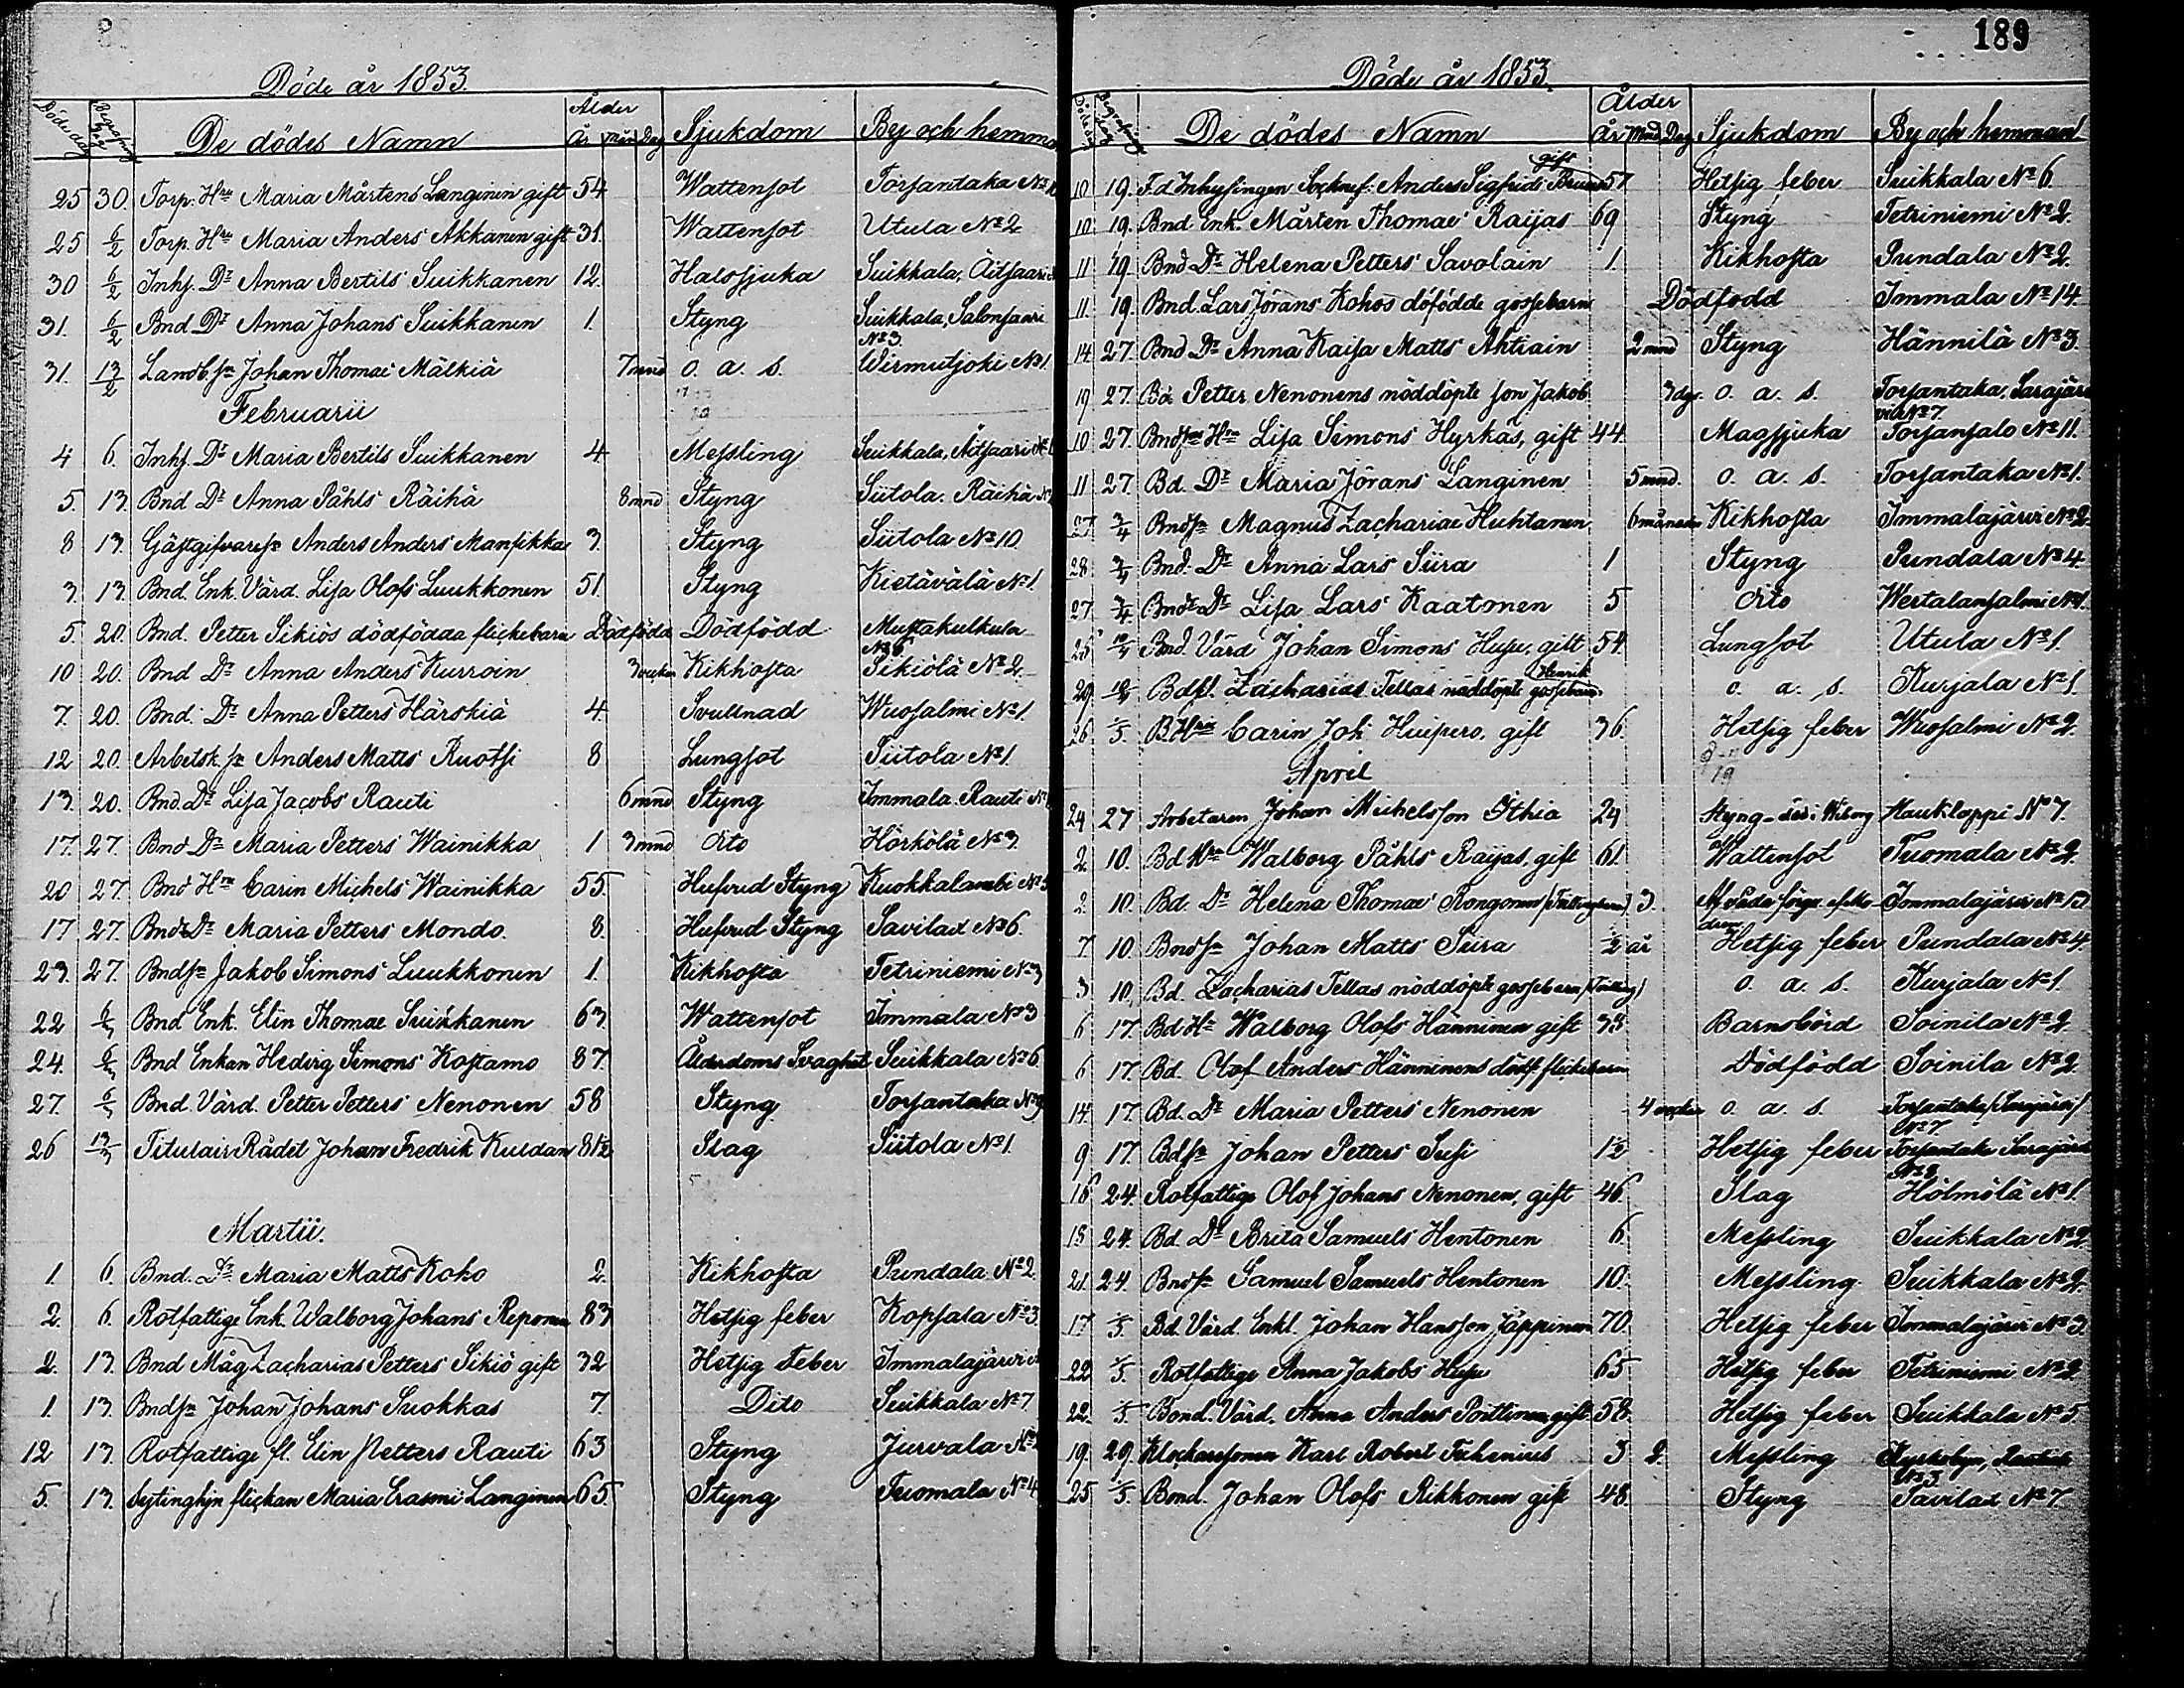 Döde år 1853.
Döde dag Begrafnings dag De dödes Namn Ålder År Mån Dag Sjukdom By och hemman
25 30. Torp. Hru Maria Mårtens Langinen gift 54 Wattensot Torsantaka No
25 6/2 Torp. Hru Maria Anders Akkanen gift 31. Wattensot Utula No 2
30 6/2 Inhs. Dr Anna Bertils Suikkanen 12. Halssjuka Suikkala, Äitsaari
31. 6/2 Bnd Dr Anna Johans Suikkanen 1. Styng Suikkala, Salonsaari
No 3.
31. 13/2 Landb. sn Johan Thomae Mälkiä 7 mnd o. a. s. Wirmutjoki No 1.
Februarii
4 6. Inhs. Dr Maria Bertils Suikkanen 4 Messling Suikkala, Äitsaari
5. 13. Bnd Dr Anna Påhls Räihä 8 mnd Styng Siitola. Räihä
8 13. Gästgifvaresn Anders Anders Mansikka 3. Styng Siitola No 10
3. 13. Bnd. Enk. Värd. Lisa Olofs Luukkonen 51. Styng Kietävälä No 1.
5. 20. Bnd. Petter Sikiös dödfödda flickebarn Dödfödd Dödfödd Mustakulkula
No 6
10 20. Bnd Dr Anna Anders Kurroin 3 veckor Kikhosta Sikiölä No 2
7. 20. Bnd. Dr Anna Petters Härskiä 4. Svullnad Wuosalmi No 1.
12 20. Arbetsk. sn Anders Matts Ruotsi 8 Lungsot Siitola No 1.
13. 20. Bnd. Dr Lisa Jacobs Rauti 6 mnd Styng Immala. Rauti
17. 27. Bnd Dr Maria Petters Wainikka 1 3 mnd dito Hörkölä No 3.
20 27. Bnd Hru Carin Michels Wainikka 55. Hufvud Styng Kuokkalambi No
17 27. Bnds Dr Maria Petters Mondo. 8. Hufvud Styng Savilax No 6.
23. 27. Bndsn Jakob Simons Luukkonen 1. Kikhosta Tetriniemi No 3
22 6/3 Bnd Enk. Elin Thomae Suikkanen 63 Wattensot Immala No 3
24. 6/3 Bnd Enkan Hedvig Simons Kostamo 87. Ålderdoms Svaghet Suikkala No 6.
27. 6/3 Bnd. Värd. Petter Petters Nenonen 58 Styng Torsantaka No 9
26 13/3 Titulair Rådet Johan Fredrik Kuldan 81 1/2 Slag Siitola No 1.
Martii.
1. 6. Bnd. Dr Maria Matts Koho 2. Kikhosta Pundala No 2
2. 6. Rotfattige Enk. Walborg Johans Reponen 83 Hetsig feber Kopsala No 3.
2. 13. Bnd Måg Zacharias Petters Sikiö gift 32 Hetsig Feber Immalajärvi
1. 13. Bndsn Johan Johans Suokkas 7. Dito Suikkala No 7
12 13. Rotfattige fl. Elin Petters Rauti 63 Styng Jurvala No
5. 13. Sytinghjn flickan Maria Erasmi Langinen 65. Styng Tuomala No 4
189
Döde år 1853.
Döde dag Begrafnings dag De dödes Namn Ålder År Mnd Dag Sjukdom By och hemman
gift
10 19. F.d Inhysingen Anders Sigfrids 57 Hetsig feber Suikkala No 6.
10 19. Bnd. Enk. Mårten Thomae Raijas 69 Styng Tetriniemi No 2.
11 19 Bnd Dr Helena Petters Savolain 1. Kikhosta Pundala No 2.
11. 19. Bnd. Lars Jörans Kohos döfödde gossebarn Dödfodd Immala No 14.
14 27. Bnd Dr Anna Kaisa Matts Ahtiain 2 mnd Styng Hännilä No 3.
19 27. Bd. Petter Nenonens nöddöpte son Jakob 3 dgr. o. a. s. Torsantaka, Sarajär
vi No 7.
10 27. Bndsns Hru Lisa Simons Hyrkäs, gift 44. Magsjuka Torsansalo No 11.
11 27. Bd. Dr Maria Jörans Langinen 5 mnd. o. a. s. Torsantaka No 1.
27 3/4 Bndsn Magnus Zachariae Huhtanen 6 månader Kikhosta Immalajärvi No 2
28 3/4 Bnd. Dr Anna Lars Siira 1 Styng Pundala No 4.
27 3/4 Bnds Dr Lisa Lars Kaatonen 5 dito Wertalansalmi No 1.
25 10/4 Bnd. Värd Johan Simons Hupu, gift 54 Lungsot Utula No 1.
Henrik
29 10/4 Bdsn. Zacharias Tellas nöddöpte gossebarn o. a. s. Kurjala No 1.
26 1/5. B. Hru Carin Joh. Huipero, gift 36. Hetsig feber Wuosalmi No 2.
April
24 27 Arbetaren Johan Michelsson Ithia 24 Styng - död i Wiborg Haukloppi No 7.
2 10. Bd Hru Walborg Påhls Raijas, gift 61. Wattensot Tuomala No 2.
2. 10. Bd. Dr Helena Thomae Rongonen (Trillingbarn) 3 Immalajärvi No 13
7 10. Bndsn Johan Matts Siira 1/2 år Hetsig feber Pundala No 4.
3 10. Bd. Zacharias Tellas nöddöpte gossebarn (Tvilling) o. a. s. Kurjala No 1.
6 17. Bd Hu Walborg Olofs Hänninen gift 38 Barnsbörd Soinila No 2
6 17. Bd. Olof Anders Hänninens dödf flickebarn Dödfödd Soinila No 2
14. 17. Bd. Dr Maria Petters Nenonen 4 veckor o. a. s. Torsantaka, (Sarajärvi)
No 7.
9 17. Bdsn Johan Petters Susi 1 1/2 Hetsig feber Torsantaka Sarajärvi
No 2
16 24. Rotfattige Olof Johans Nenonen, gift 46. Slag Hölmölä No 1.
18 24. Bd. Dr Brita Samuels Hentonen 6. Messling Suikkala No 2.
21. 24. Bndsn Samuel Samuels Hentonen 10. Messling Suikkala No 2.
17 1/5. Bd. Värd. Enkl. Johan Hansson Jäppinen 70. Hetsig feber Immalajärvi No 3.
22 1/5. Rotfattige Anna Jakobs Hupu 65 Hetsig feber Tetriniemi No 2
22. 1/5. Bond. Värd. Anna Anders Pöittinen gift 58. Hetsig feber Suikkala No 5.
19. 29. Klockaresonen Karl Robert Fahenius 3 2. Messling Kyrkobyn,
No 3.
25 1/5. Bond. Johan Olofs Rikkonen gift 48. Styng Savilax No 7